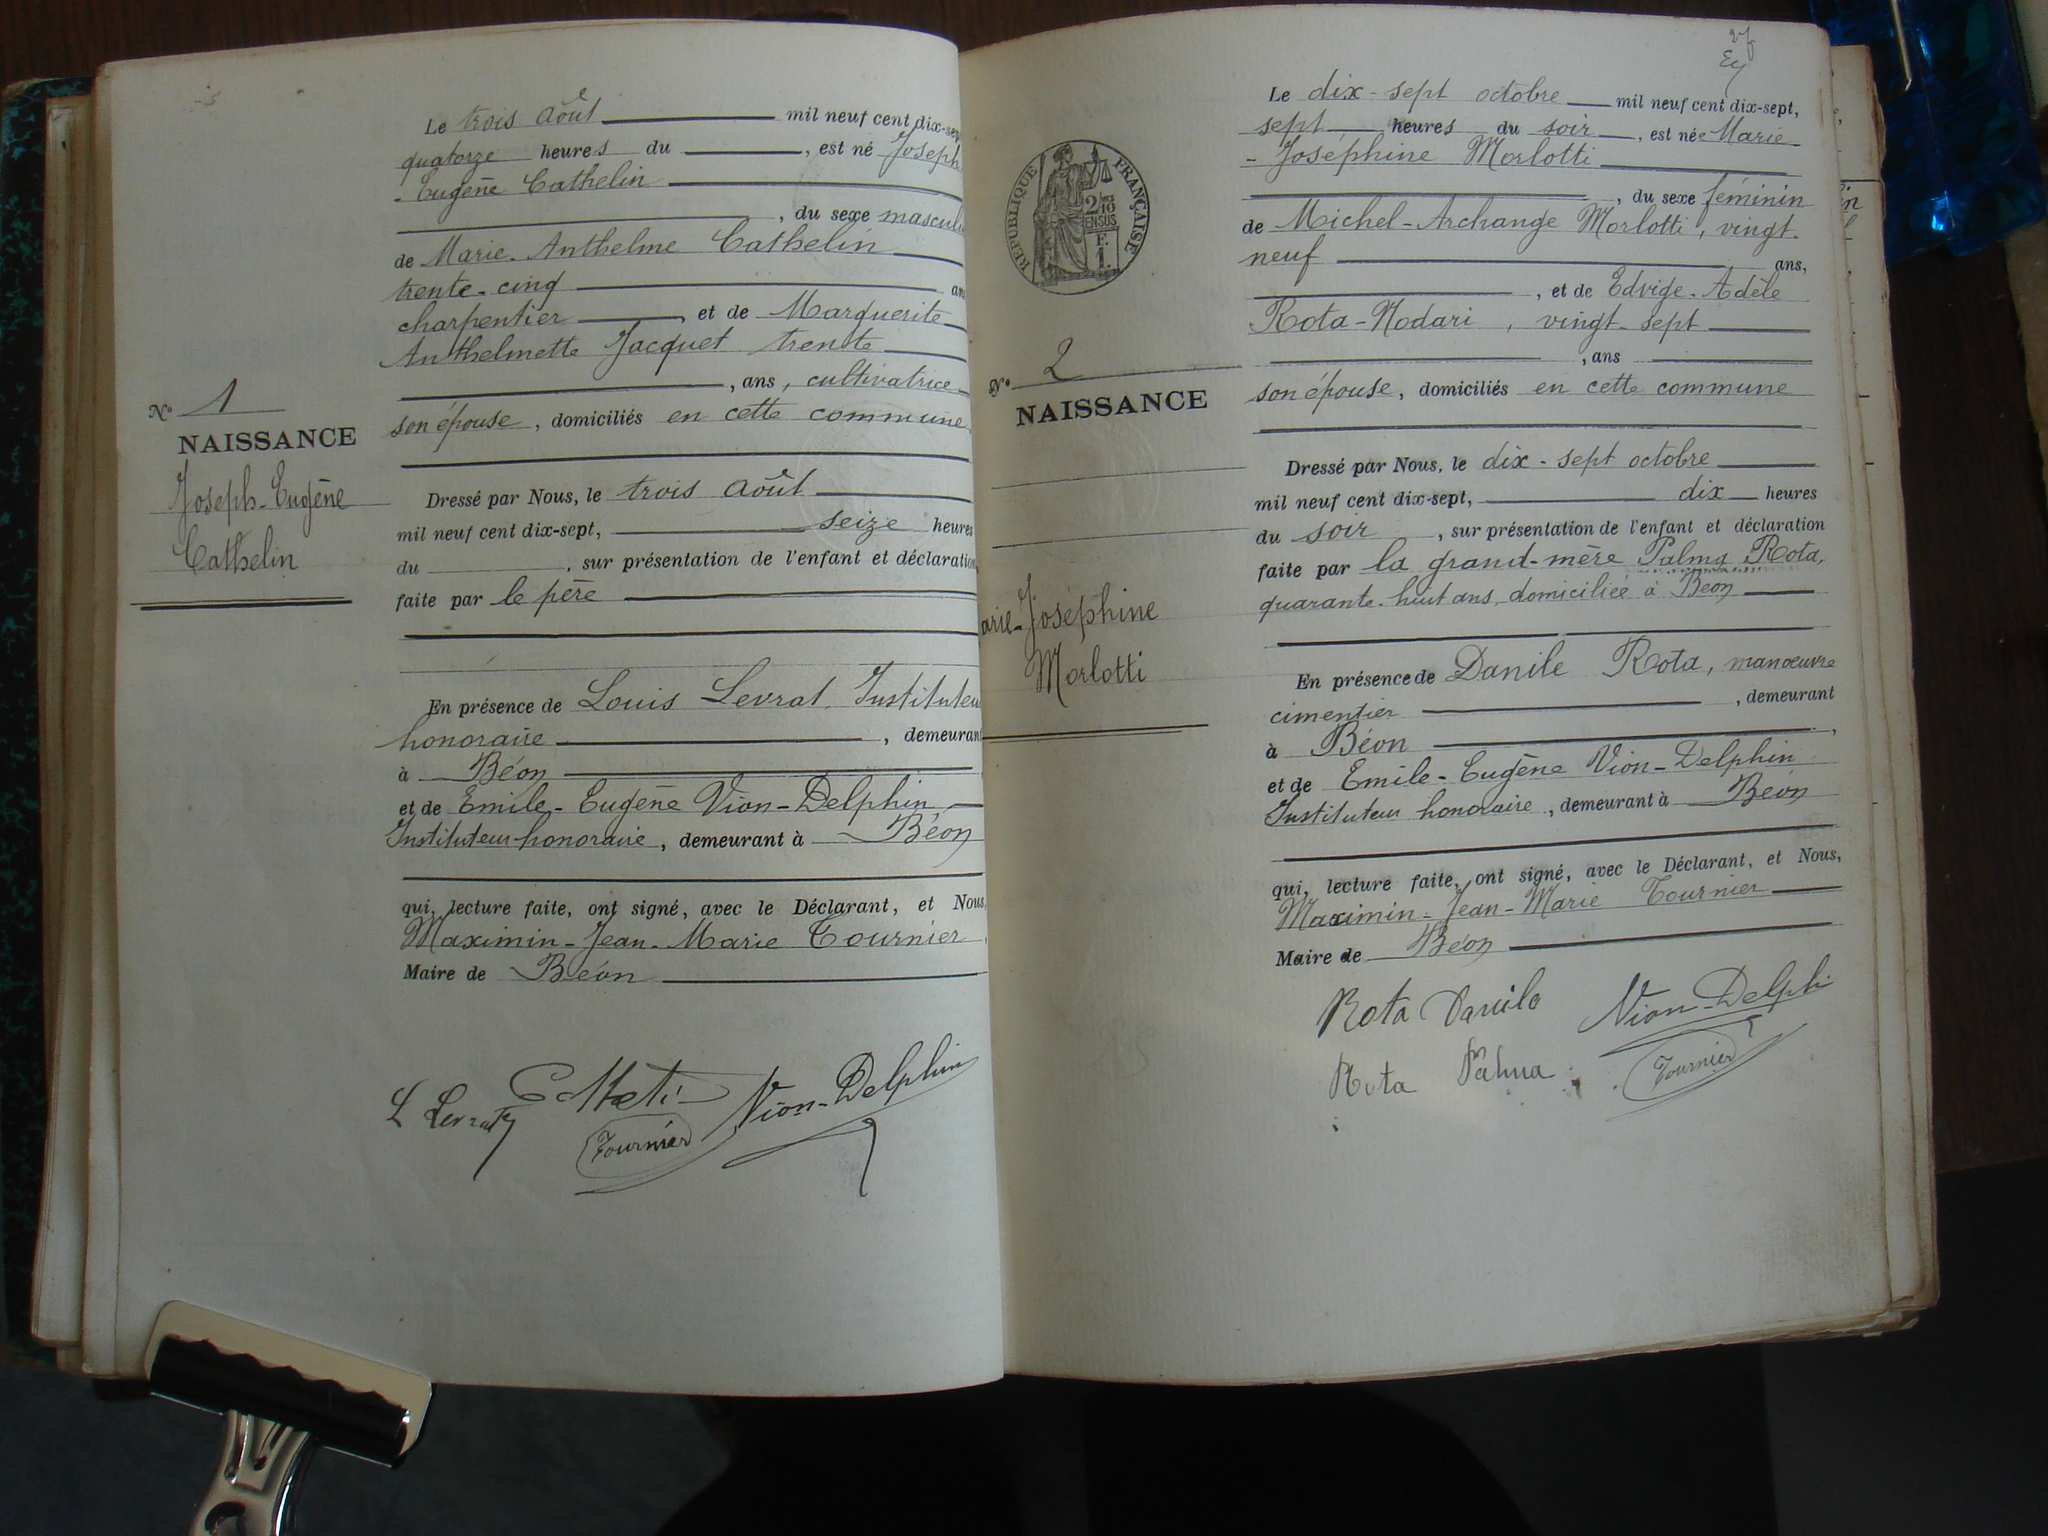 Le trois Août mil neuf cent dix-sep
quatorze heures du , est né Joseph
- Eugène Cathelin
, du sexe masculi
de Marie-Anthelme Cathelin
trente-cinq an
charpentier et de Marguerite
Anthelmette Jacquet trente
, ans, cultivatrice
son épouse, domiciliés en cette commune
N° 1
NAISSANCE
Joseph-Eugène
Cathelin
Dressé par Nous, le trois Août
mil neuf cent dix-sept, seize heures
du , sur présentation de l'enfant et déclaration
faite par le père
En présence de Louis Levrat, Instituteu
honoraire , demeurant
à Béon
et de Emile-Eugène Vion-Delphin
Instituteur honoraire, demeurant à Béon
qui, lecture faite, ont signé, avec le Déclarant, et Nous,
Maximin-Jean-Marie Tournier
Maire de Béon
L Levrat
Vion-Delphin
Tournier
Le dix-sept octobre mil neuf cent dix-sept,
sept heures du soir , est née Marie-
- Joséphine Morlotti
, du sexe féminin
de Michel-Archange Morlotti, vingt-
neuf ans,
, et de Edvige-Adèle
Rota-Nodari, vingt-sept
, ans
son épouse, domiciliés en cette commune
RÉPUBLIQUE FRANÇAISE
2/10
EN SUS
F.
1.
N° 2
NAISSANCE
arie-Joséphine
Morlotti
Dressé par Nous, le dix-sept octobre
mil neuf cent dix-sept, dix heures
du soir , sur présentation de l'enfant et déclaration
faite par la grand-mère Palma Rota,
quarante-huit ans, domiciliée à Béon
En présence de Danile Rota, manœuvre
cimentier , demeurant
à Béon ,
et de Emile-Eugène Vion-Delphin
Instituteur honoraire, demeurant à Béon
qui, lecture faite, ont signé, avec le Déclarant, et Nous,
Maximin-Jean-Marie Tournier
Maire de Béon
Rota Danilo Vion-Delphi
Rota Palma Tournier